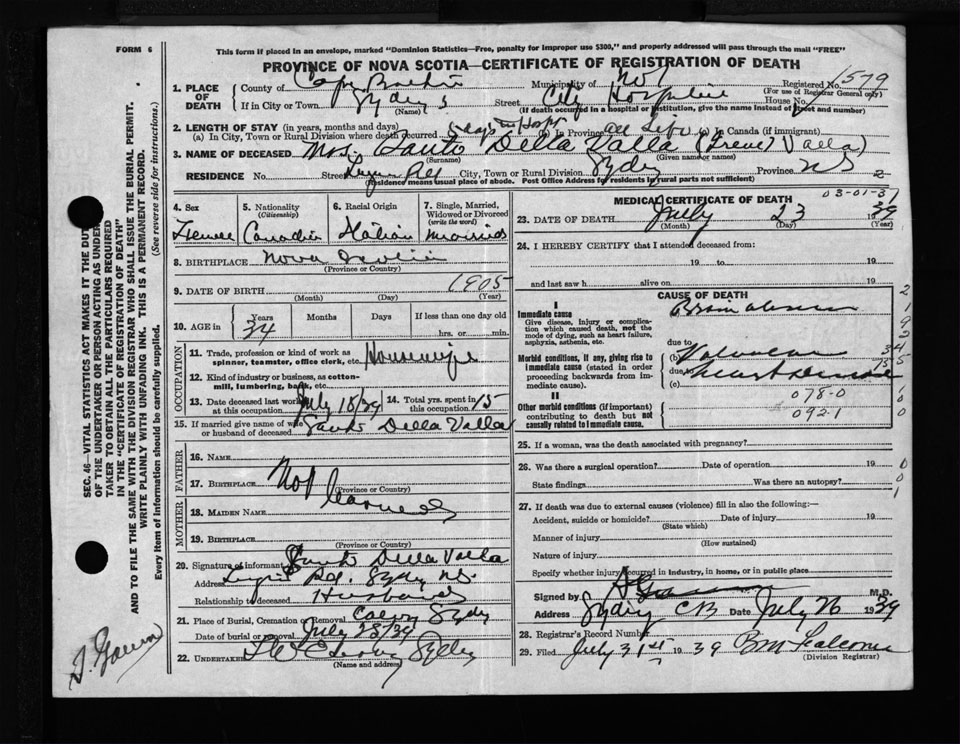 FORM 6
This form if placed in an envelope, marked "Dominion Statistics—Free, penalty for improper use $300," and properly addressed will pass through the mail "FREE"
PROVINCE OF NOVA SCOTIA—CERTIFICATE OF REGISTRATION OF DEATH
1. PLACE OF DEATH
County of Cape Breton Municipality of Registered No. 1579
(For use of Registrar General only)
If in City or Town Sydney Street City Hospital House No.
(Name) (If death occurred in a hospital or institution, give the name instead of street and number)
2. LENGTH OF STAY (in years, months and days)
(a) In City, Town or Rural Division where death occurred 5 days in Hosp (b) In Province all life (c) In Canada (if immigrant)
3. NAME OF DECEASED Mrs. Santo Della Valla (Irene Valla)
(Surname) (Given name or names)
RESIDENCE No. Street Lingan Rd City, Town or Rural Division Sydney Province NS
(Residence means usual place of abode. Post Office Address for residents in rural parts not sufficient)
4. Sex
5. Nationality (Citizenship)
6. Racial Origin
7. Single, Married, Widowed or Divorced (write the word)
Female Canadian Italian Married
8. BIRTHPLACE Nova Scotia
(Province or Country)
9. DATE OF BIRTH 1905
(Month) (Day) (Year)
10. AGE in Years Months Days If less than one day old
34 hrs. or min.
OCCUPATION
11. Trade, profession or kind of work as spinner, teamster, office clerk, etc. Housewife
12. Kind of industry or business, as cotton-mill, lumbering, bank, etc.
13. Date deceased last worked at this occupation July 18/39
14. Total yrs. spent in this occupation 15
15. If married give name of wife or husband of deceased Santo Della Valla
FATHER
16. Name
17. BIRTHPLACE Not
(Province or Country)
MOTHER
18. MAIDEN NAME
19. BIRTHPLACE
(Province or Country)
20. Signature of informant Santo Della Valla
Address Lingan Rd. Sydney NS.
Relationship to deceased Husband
21. Place of Burial, Cremation or Removal Sydney
Date of burial or removal July 25/39
22. UNDERTAKER Sydney
(Name and address)
MEDICAL CERTIFICATE OF DEATH
03-01-37
23. DATE OF DEATH July 23 1939
(Month) (Day) (Year)
24. I HEREBY CERTIFY that I attended deceased from:
19 to 19
and last saw h alive on 19
CAUSE OF DEATH
I
Immediate cause
Give disease, injury or complication which caused death, not the mode of dying, such as heart failure, asphyxia, asthenia, etc.
(a) Brain abscess
due to
Morbid conditions, if any, giving rise to immediate cause (stated in order proceeding backwards from immediate cause).
(b) Valvular
due to
(c) heart disease
II
Other morbid conditions (if important) contributing to death but not causally related to immediate cause.
078-0
092-1
25. If a woman, was the death associated with pregnancy?
26. Was there a surgical operation? Date of operation 19
State findings Was there an autopsy?
27. If death was due to external causes (violence) fill in also the following:—
Accident, suicide or homicide? Date of injury 19
(State which)
Manner of injury
(How sustained)
Nature of injury
Specify whether injury occurred in industry, in home, or in public place
Signed by M.D.
Address Sydney CB Date July 26 1939
28. Registrar's Record Number
29. Filed July 31st 1939
(Division Registrar)
SEC. 46—VITAL STATISTICS ACT MAKES IT THE DUTY
OF THE UNDERTAKER OR PERSON ACTING AS UNDERTAKER TO OBTAIN ALL THE PARTICULARS REQUIRED
IN THE "CERTIFICATE OF REGISTRATION OF DEATH"
AND TO FILE THE SAME WITH THE DIVISION REGISTRAR WHO SHALL ISSUE THE BURIAL PERMIT.
WRITE PLAINLY WITH UNFADING INK. THIS IS A PERMANENT RECORD.
Every item of Information should be carefully supplied. (See reverse side for instructions.)